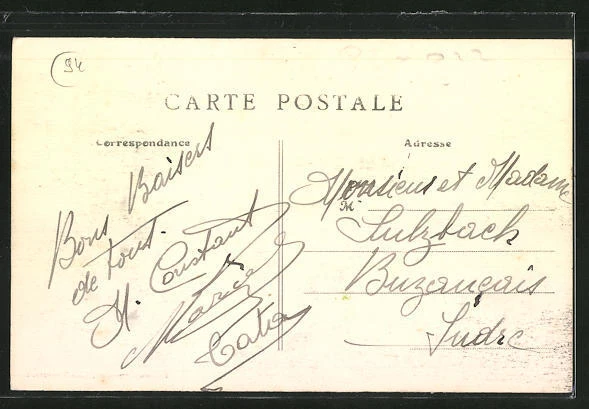 94
CARTE POSTALE
Correspondance
Adresse
Bons Baisers
de tout.
H. Constant
Maria
Catia
Monsieur et Madame
Sulzbach
Buzançais
Indre